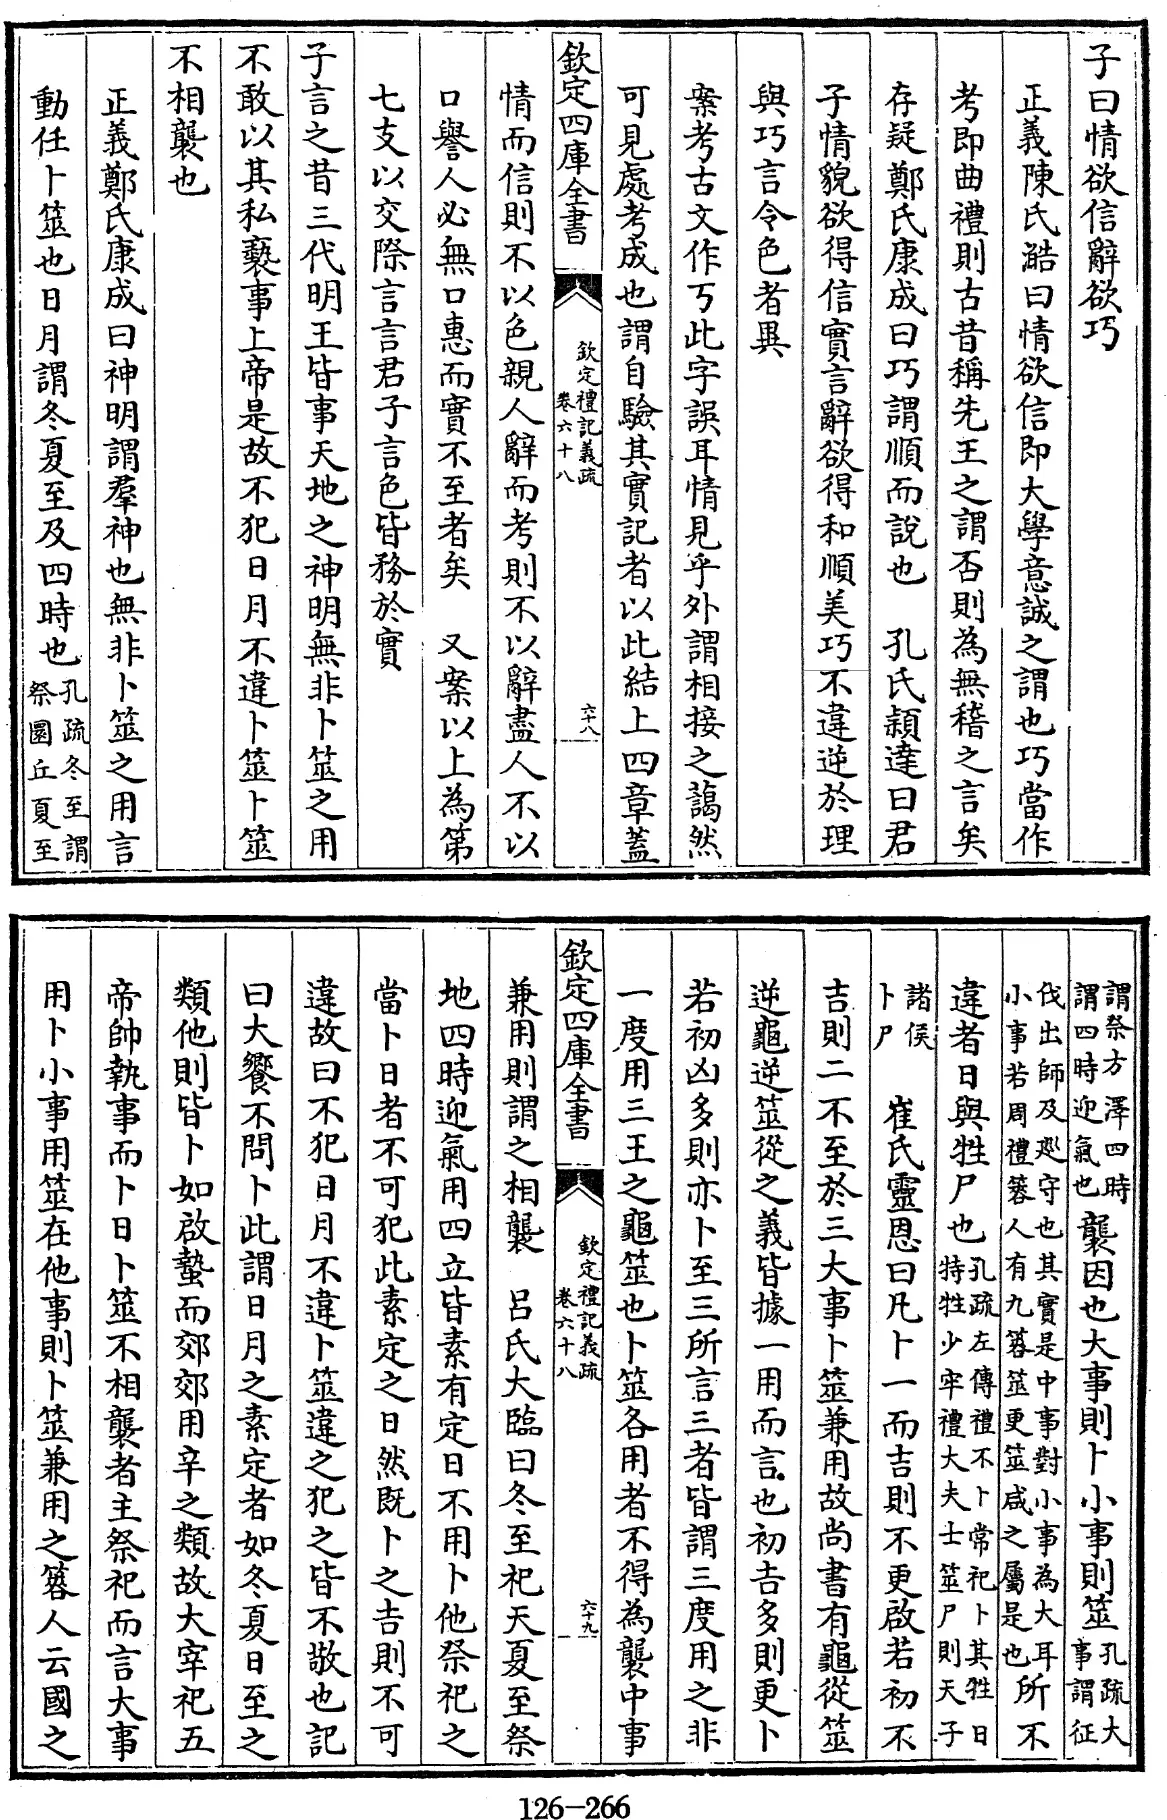 子曰情欲信辭欲巧
正義陳氏澔曰情欲信即大學意誠之謂也巧當作
考即曲禮則古昔稱先王之謂否則為無稽之言矣
存疑鄭氏康成曰巧謂順而說也　孔氏穎達曰君
子情貌欲得信實言辭欲得和順美巧不違逆於理
與巧言令色者異
案考古文作丂此字誤耳情見乎外謂相接之藹然
可見處考成也謂自驗其實記者以此結上四章蓋
欽定四庫全書
欽定禮記義疏
卷六十八
六十八
情而信則不以色親人辭而考則不以辭盡人不以
口譽人必無口惠而實不至者矣　又案以上為第
七支以交際言言君子言色皆務於實
子言之昔三代明王皆事天地之神明無非卜筮之用
不敢以其私褻事上帝是故不犯日月不違卜筮卜筮
不相襲也
正義鄭氏康成曰神明謂羣神也無非卜筮之用言
動任卜筮也日月謂冬夏至及四時也
孔疏冬至謂
祭圜丘夏至
謂祭方澤四時
謂四時迎氣也
襲因也大事則卜小事則筮
孔疏大
事謂征
伐出師及廵守也其實是中事對小事為大耳
小事若周禮簭人有九簭筮更筮咸之屬是也
所不
違者日與牲尸也
孔疏左傳禮不卜常祀卜其牲日
特牲少牢禮大夫士筮尸則天子
諸侯
卜尸
崔氏靈恩曰凡卜一而吉則不更啟若初不
吉則二不至於三大事卜筮兼用故尚書有龜從筮
逆龜逆筮從之義皆據一用而言也初吉多則更卜
若初凶多則亦卜至三所言三者皆謂三度用之非
一度用三王之龜筮也卜筮各用者不得為襲中事
欽定四庫全書
欽定禮記義疏
卷六十八
六十九
兼用則謂之相襲　呂氏大臨曰冬至祀天夏至祭
地四時迎氣用四立皆素有定日不用卜他祭祀之
當卜日者不可犯此素定之日然既卜之吉則不可
違故曰不犯日月不違卜筮違之犯之皆不敬也記
曰大饗不問卜此謂日月之素定者如冬夏日至之
類他則皆卜如啟蟄而郊郊用辛之類故大宰祀五
帝帥執事而卜日卜筮不相襲者主祭祀而言大事
用卜小事用筮在他事則卜筮兼用之簭人云國之
126-266